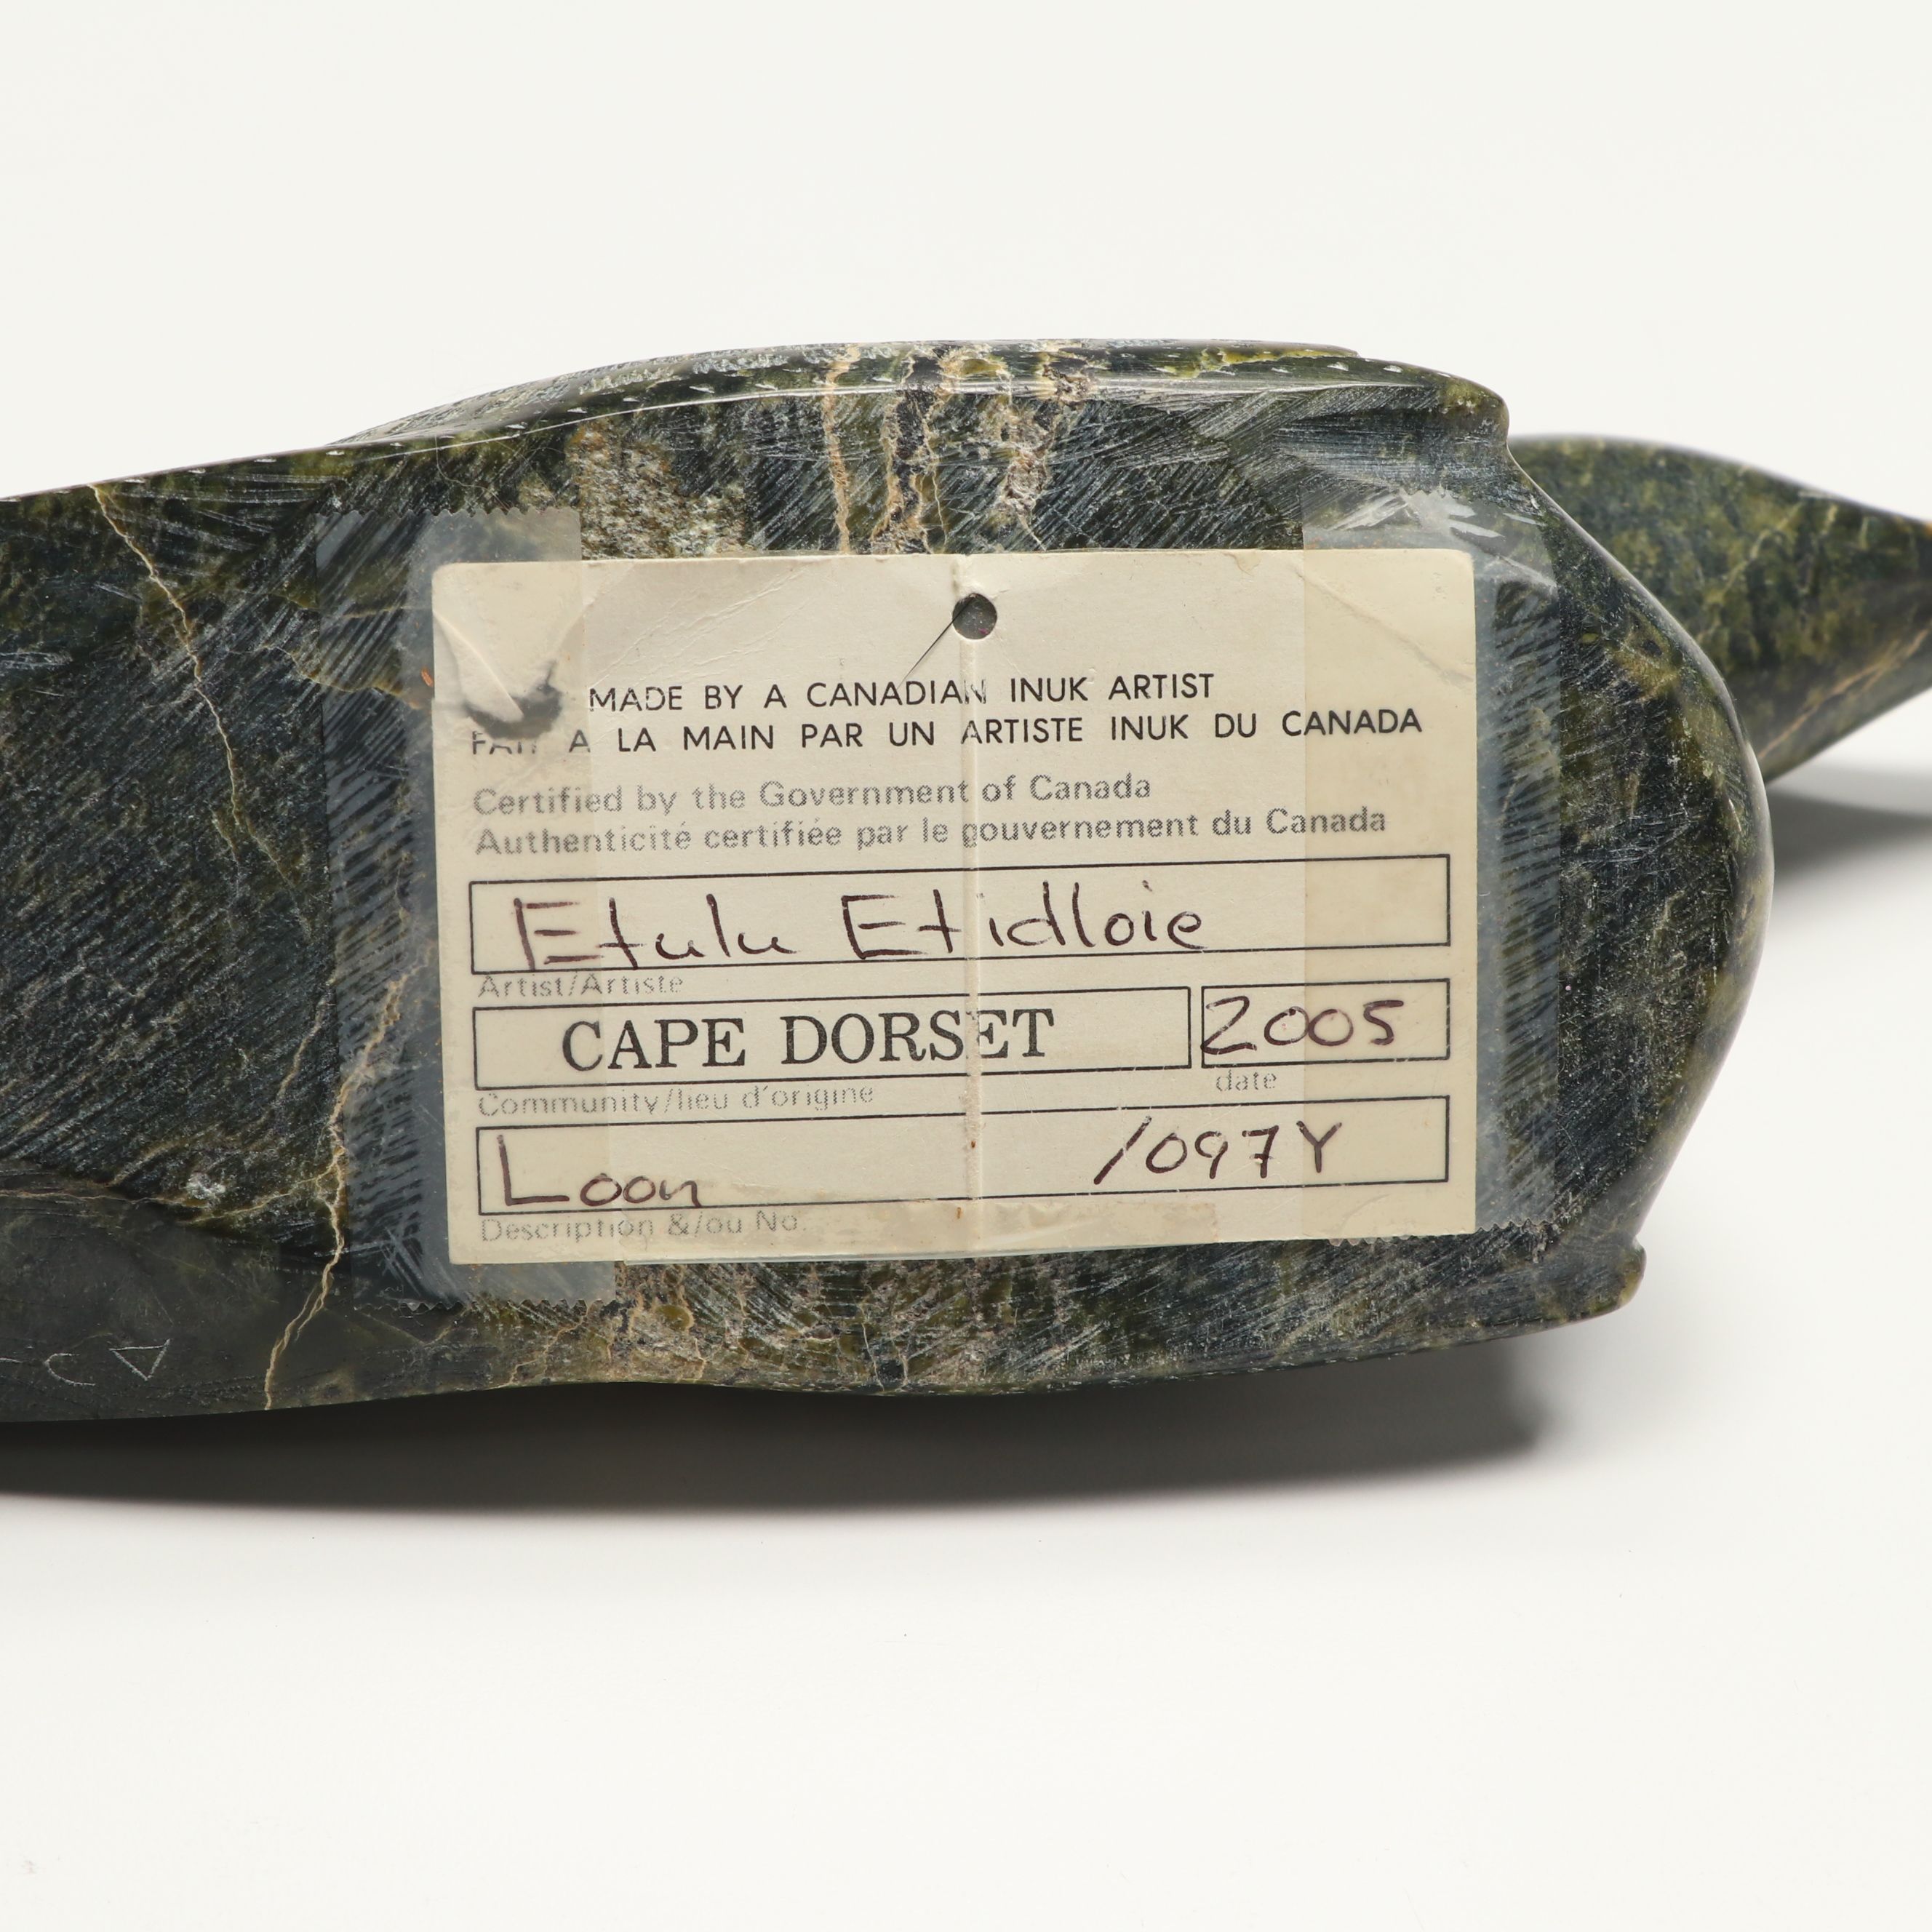 MADE BY A CANADIAN INUK ARTIST
FAIT A LA MAIN PAR UN ARTISTE INUK DU CANADA
Certified by the Government of Canada
Authenticité certifiée par le gouvernement du Canada
Etulu Etidloie
Artist/Artiste
CAPE DORSET 2005
Community/lieu d'origine date
Loon /097Y
Description &/ou No.